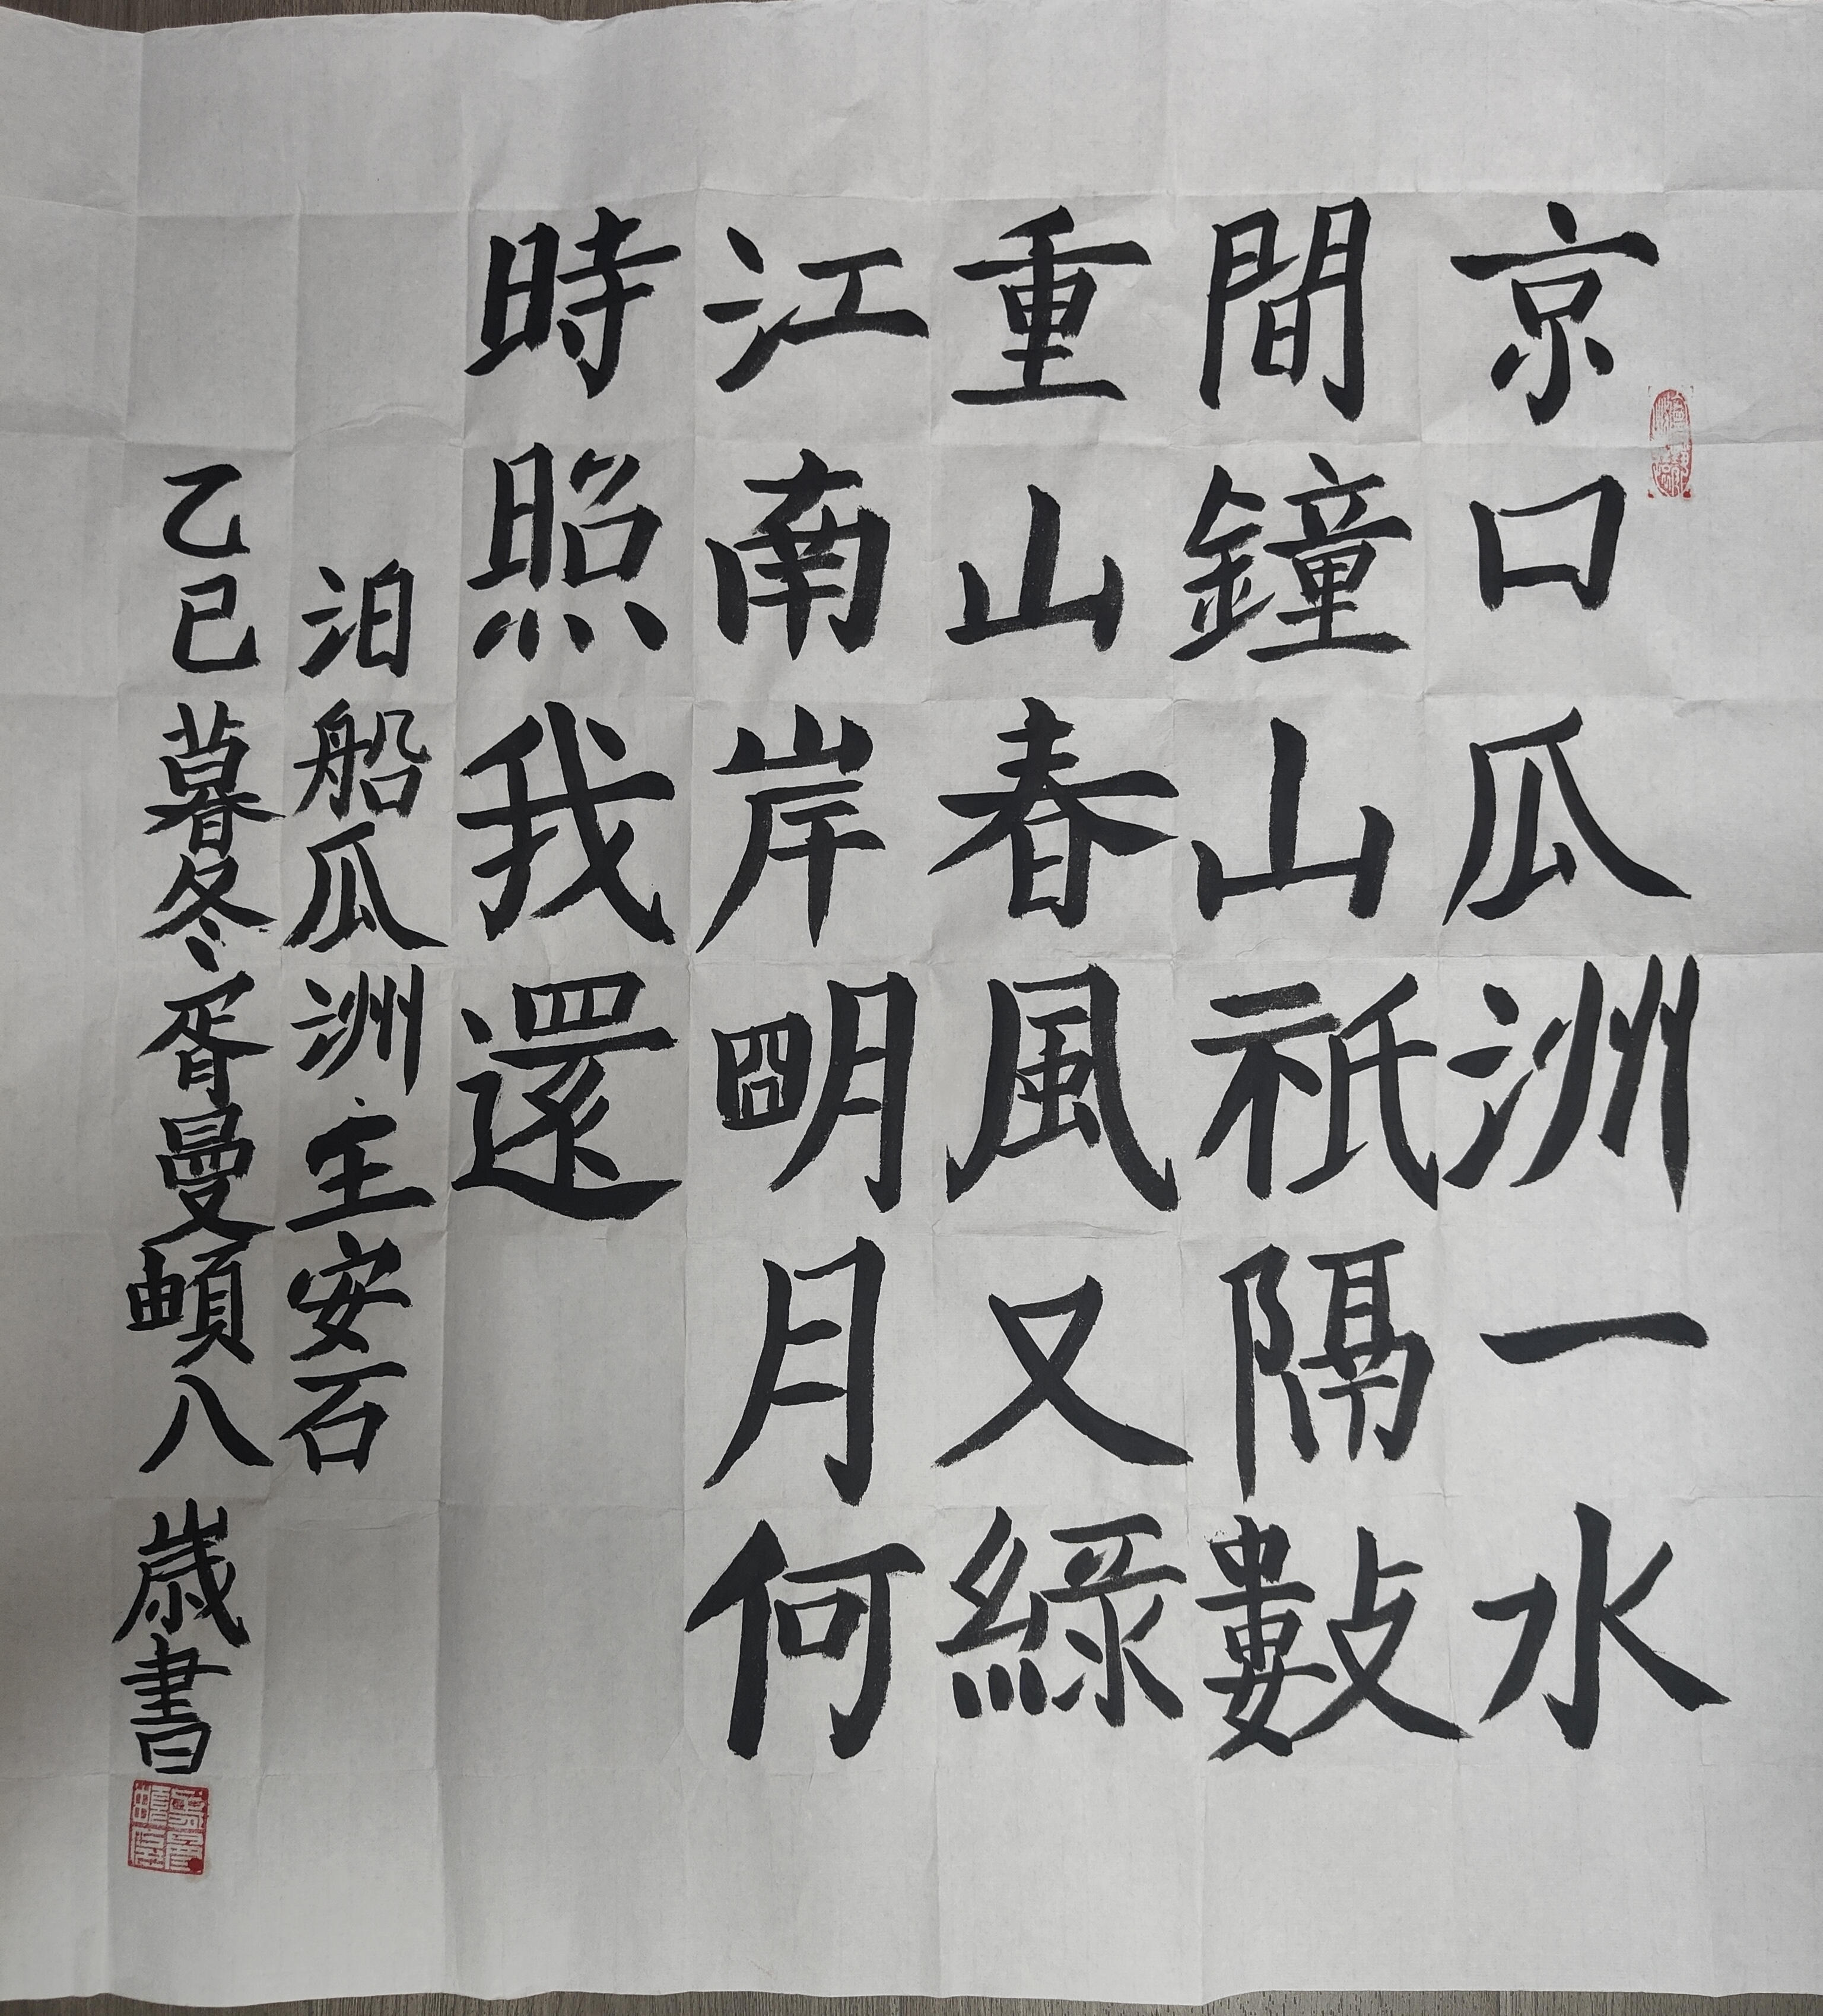 京口瓜洲一水
間鐘山祇隔數
重山春風又綠
江南岸明月何
時照我還
泊船瓜洲王安石
乙巳暮冬胥曼頔八歲書